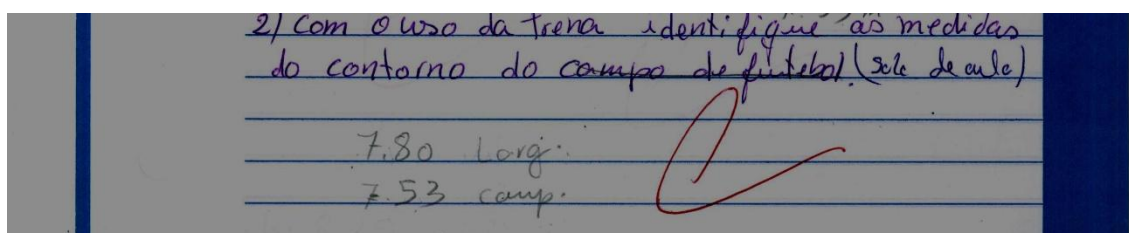 2) Com o uso da trena identifique as medidas
do contorno do campo de futebol (sala de aula)
7.80 Larg.
7.53 comp.